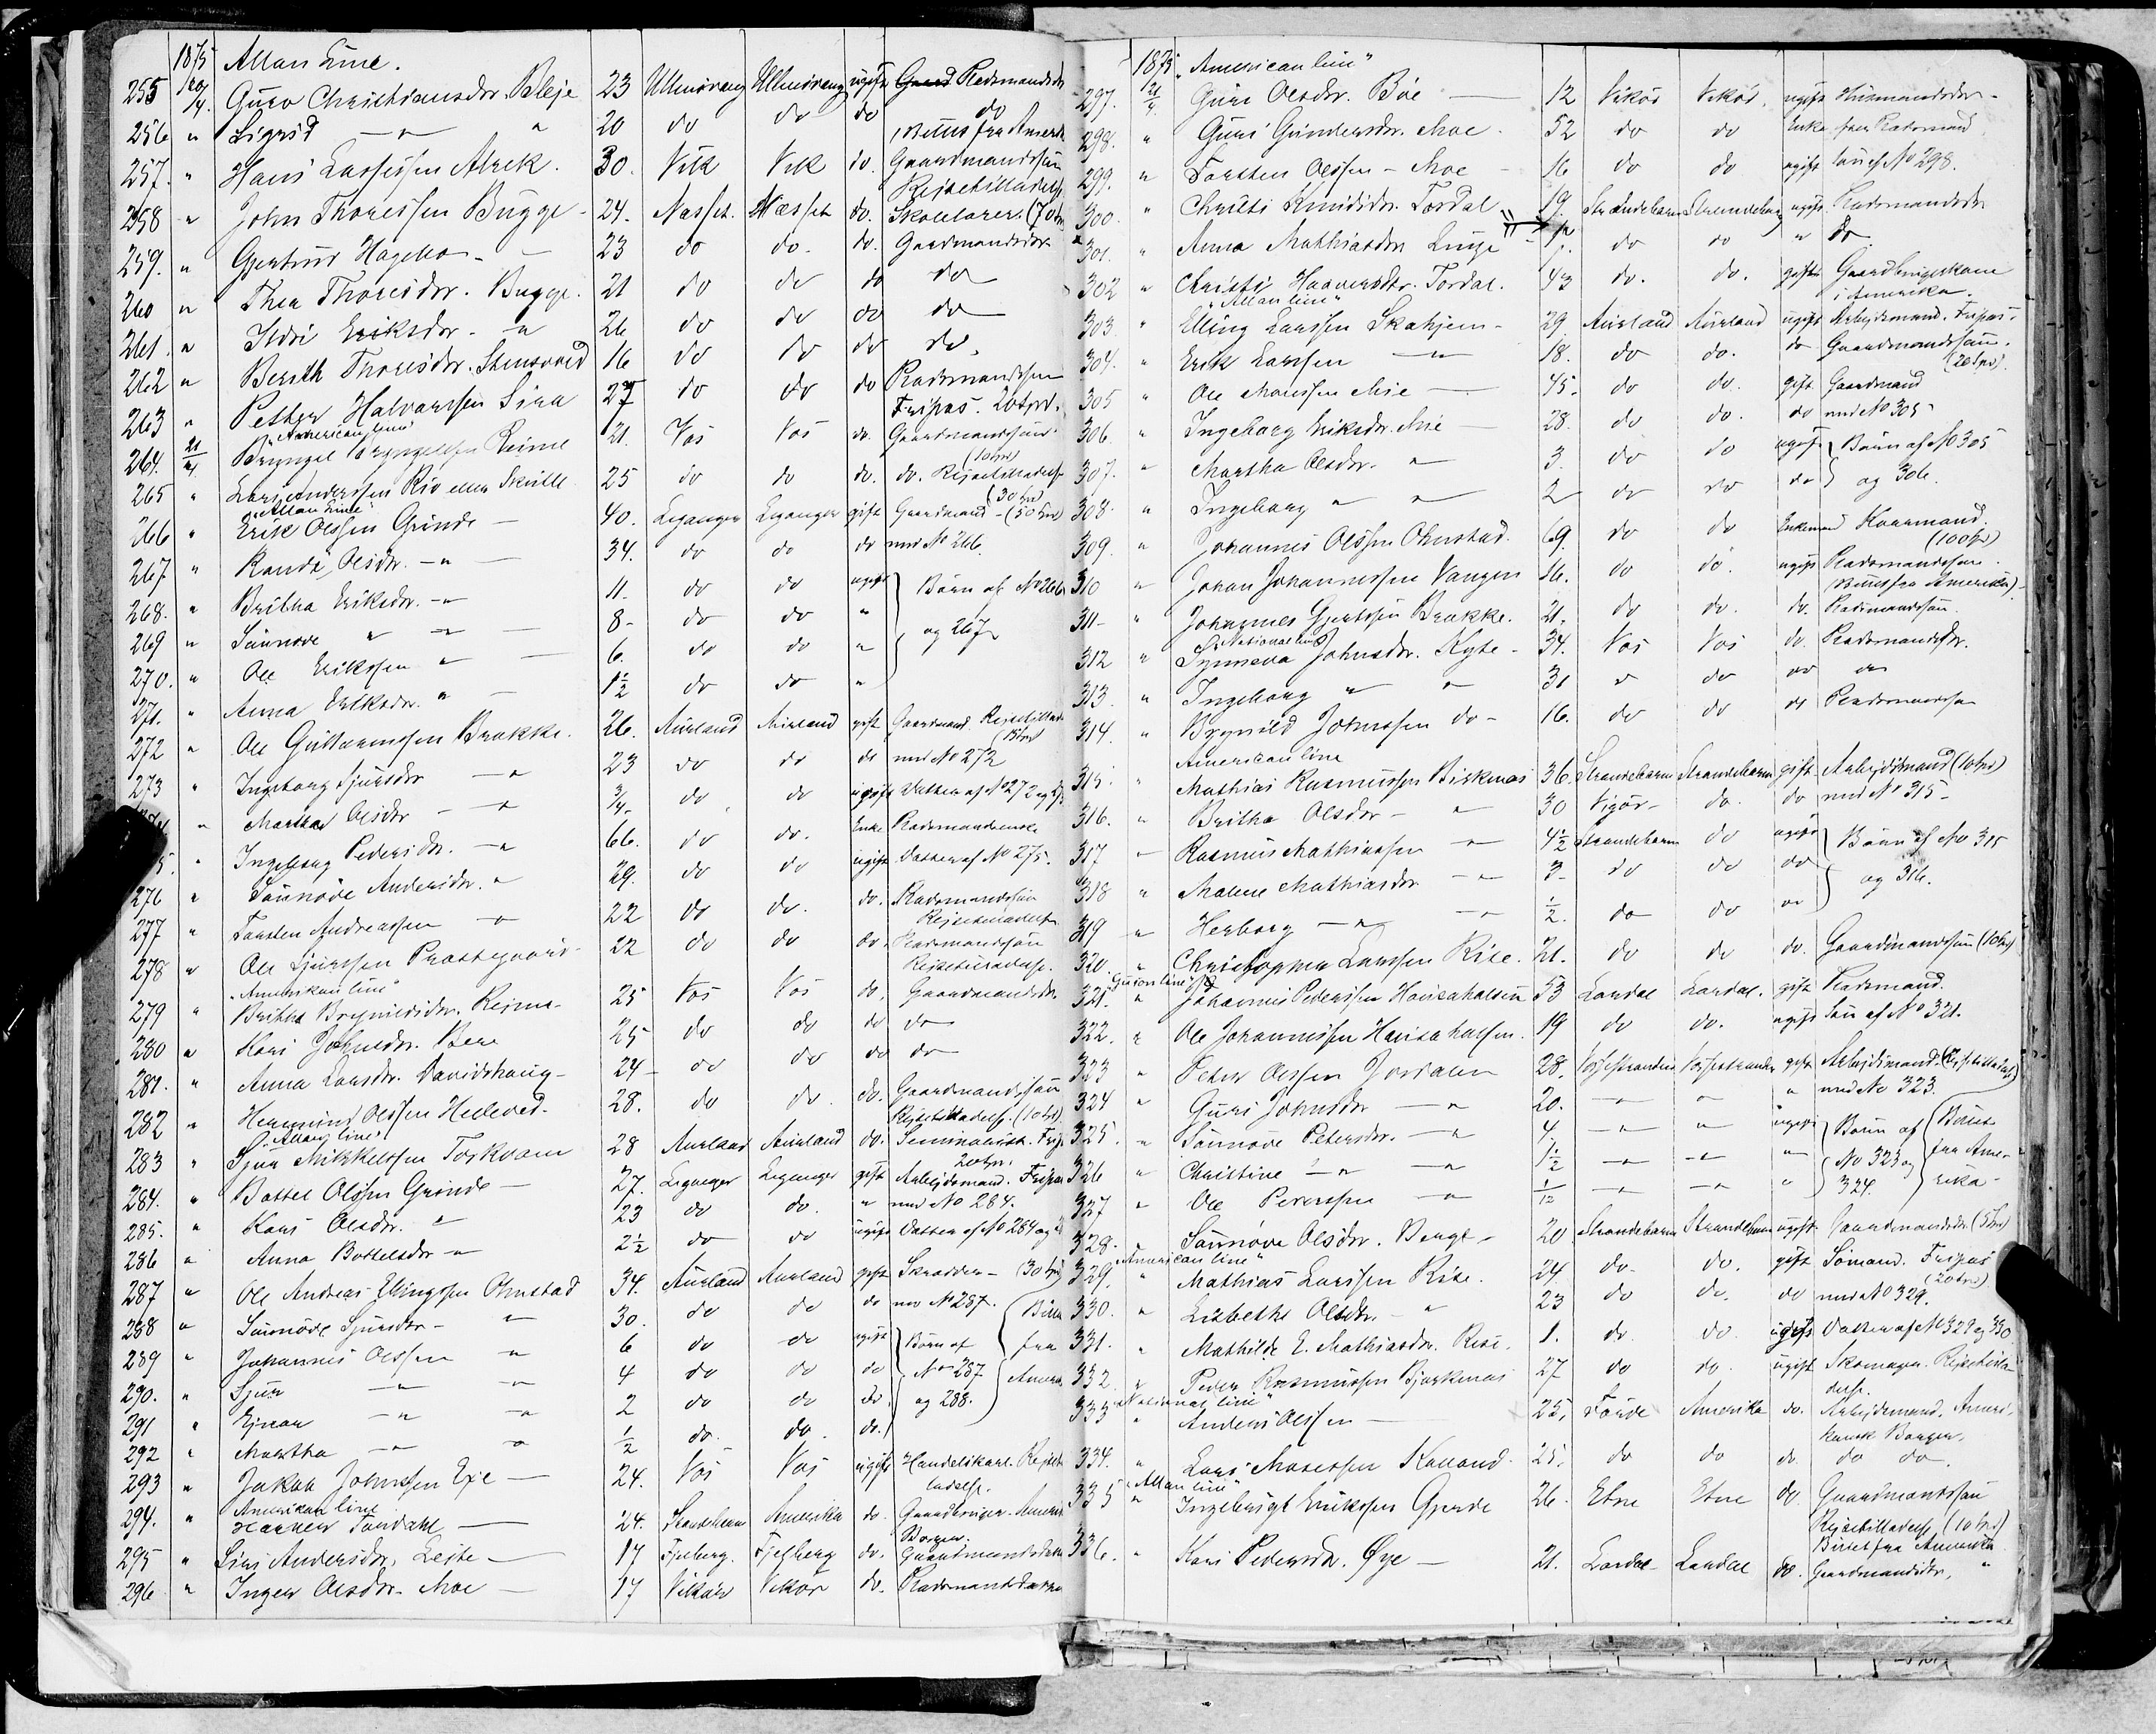 1875 Allan Line.
255 20/4. Guro Christiansdr. Bleje 23 Ullensvang Ullensvang ugift Pladsmandsdr
256 " Sigrid — " " 20 do do do do
257. " Hans Lassessen Alrek. 30. Vik Vik do. Gaardmandssøn
258 " John Thoressen Bugge - 24. Næsset. Næsset do. Skolelærer.
259. " Gjertrud - 23 do do. do. Gaardmandsdr
260 " Thea Thoresdr. Bugge. 21 do do do do
261. " Ildri Eriksdr. - " 26 do do do do
262 " Berith Thoresdr. 16 do do do do.
263 " Petter Halvorssen 27 do do do Pladsmandssøn
Fripas. 20 spd.
"American line"
264. 21/4 Bryngel Bryngelsen Reime 21. Vos Vos do. Gaardmandssøn
(10 spd)
265 " Lars Anderssen 25 do do do. do. Rejsetilladelse
(30 spd)
"Allan Line"
266 " Erik Olssen Grinde - 40. Leganger Leganger gift Gaardmand - (50 spd)
267 " Randi Olsdr. - " - 34. do do do med No 266.
268. " Britha Eriksdr. - " 11. do do ugift Børn af No 266
269 " Sünnøve " - " 8- do do " og 267
270. " Ole Erikssen " - 6. do do "
271. " Anna Eriksdr. " - 1½ do do "
272 " Ole Guttormssen Brække. 26. Aurland Aurland gift Gaardmand. Rejsetillad
273 " Ingeborg Sjursdr - " 23 do do do med No 272
" Martha Olsdr - " ¾ do do ugift Datter af No 272 og
" Ingeborg Pedersdr. - " 66. do do. Enke Pladsmandsenke
276 " Sünnøve Andersdr. " 29. do do ugift Datter af No 275.
277 " Torsten Andreassen - " 22 do do. do. Pladsmandssøn
Rejsetilladelse
278 " Ole Sjurssen Prestegaard 22 do do do. Pladsmandssøn
Rejsetilladelse.
"Amerikan line"
279 " Britha Brynildsdr. Rejme - 25 Vos Vos do. Gaardmandsdr.
280 " Kari Johnsdr. Bere 25 do do do do
281. " Anna Larsdr. Davidshaug - 24 - do do do do
282 " Hermund Olssen 28. do do. do. Gaardmandssøn
Rejsetilladelse. (10 spd)
"Allan line"
283 " Sjur Mikkelssen 28 Aurland Aurland do. Seminarist.
20 spd.
284. " Bottel Olssen Grinde - 27. Leganger Leganger gift Arbejdsmand. Fripas
285. " Kari Olsdr. " 23 do do. " med No 284.
286 " Anna Bottelsdr - " 2½ do do ugift Datter af No 284 og
287 " Ole Andreas Ellingssen Ohnstad 34. Aurland Aurland gift Skrædder - (30 spd)
288 " Sünnøve Sjursdr - " 30. do do do med No 287.
289 " Johannes Olssen " 6 do do ugift Børn af fra
290. " Sjur - " - " 4 do do do No 287
291 " Ejnar - " - " 2 do do do. og 288.
292 " Martha - " " ½ do. do. do.
293 " Jakob Johnssen - 24. Vos Vos ugift Handelskarl. Rejsetil
ladelse.
Amerikan line
294. " - 24. Strandebarm Amerika do. Gaardbruger. Amerik
Borger.
295 " Siri Andersdr. - 17 Fjelberg. Fjelberg do. Gaardmandsdatter
296 " Inger Olsdr. Moe - 17 Vikør Vikør do. Pladsmandsdatter
1875 "American line"
297. 21/4 Guri Olsdr. Bøe - 12 Vikør Vikør. ugift Husmandsdr -
298. " Guri Gundersdr. Moe. 52 do do Enke Pladsmand
299. " Torsten Olssen - Moe 16 do do ugift Søn af No 298.
300. " Christi Tordal 19. Strandebarm Strandebarm ugift Pladsmandsdr
301. " Anna Mathiasdr Linge - do do " do
302 " Christi Haaversdr. Tordal. 43 do. do. gift Gaardbrugerkone
i Amerika.
"Allan line"
303. " Elling Larssen Skahjem - 29 Aurland Aurland ugift Arbejdsmand. Fripas.
304. " Erik Larssen - " 18. do do. do Gaardmandssøn.
(20 spd).
305 " Ole Monssen Mie - 45. do do. gift Gaardmand
306. " Ingeborg Eriksdr. Mie - 28. do do. do med No 305
307. " Martha Olsdr. " 3. do do ugift Børn af No 305
308. " Ingeborg " " 2 do do do og 306.
309. " Johannes Olssen Ohnstad. 69. do do Enkemand Kaarmand.
(100 spd)
310 " Johan Johannessen Vangen 16. do do. ugift Pladsmandssøn.
(Billet fra Amerika)
311- " Johannes Gjertssen Brække. 21. do do. do. Pladsmandssøn.
"National line"
312 " Synneva Johnsdr. Kyte - 34. Vos Vos do. Pladsmandsdr.
313. " Ingeborg " " 31 " do do do
314. " Brynild Johnssen do - 16. do do do Pladsmandssøn
American line
315. " Mathias Rasmussen 36. Strandebarm Strandebarm gift Arbejdsmand (10 spd)
316. " Britha Olsdr - " 30 Vigør - do. do med No 315 -
317 " Rasmus Mathiassen " 4½ Strandebarm do ugift Børn af No 315
318 " Malene Mathiasdr - " 3. do do do og 316.
319 " Herborg - " - " ½. do do do
320. " Christopher Larssen Rise. 21. do do do. Gaardmandssøn (10 spd)
"Guion line"
321. " Johannes Pederssen 53 Lærdal Lærdal. gift Pladsmand.
322. " Ole Johannessen 19 do do. ugift Søn af No 321.
323 " Peter Olssen Jordalen 28. Vossestranden Vossestranden gift Arbejdsmand. (Rejsetilladelse)
324 " Guri Johnsdr - " 20. - " " " med No 323.
325. " Sünnøve Petersdr. - " 4. - " " ugift Børn af Billet
326 " Christine - " - " 1½ - " - " " No 323 og fra Ame-
327 " Ole Peterssen - " 1/12 - " - " " 324. rika -
328. " Sünnøve Olsdr. Berge - 20 Strandebarm Strandebarm ugift Gaardmandsdr. (5 spd)
"American line"
329. " Mathias Larssen Rise. 24. do. do. gift Sømand. Fripas
(20 spd)
330. " Lisbeth Olsdr. - " 23 do do. do med No 329.
331. " Mathilde E. Mathiasdr. Rise. 1. do. do. ugift Datter af No 329 og 330
332. " Peder Rasmussen Bjerkenæs 27 do do. ugift Skomager. Rejsetilla-
delse.
"National line"
333 " Anders Olssen - 25. Førde Amerika do. Arbejdsmand. Ameri-
kansk Borger.
334. " Lars Mosessen 25. do do do. do do.
"Allan line"
335 " Ingebrigt Erikssen Gjerde 26. Etne Etne do. Gaardmandssøn
Rejsetilladelse (10 spd)
Billet fra Amerika
336. " Kari Pedersdr. Øye - 21. Lærdal Lærdal do. Gaardmandsdr. "